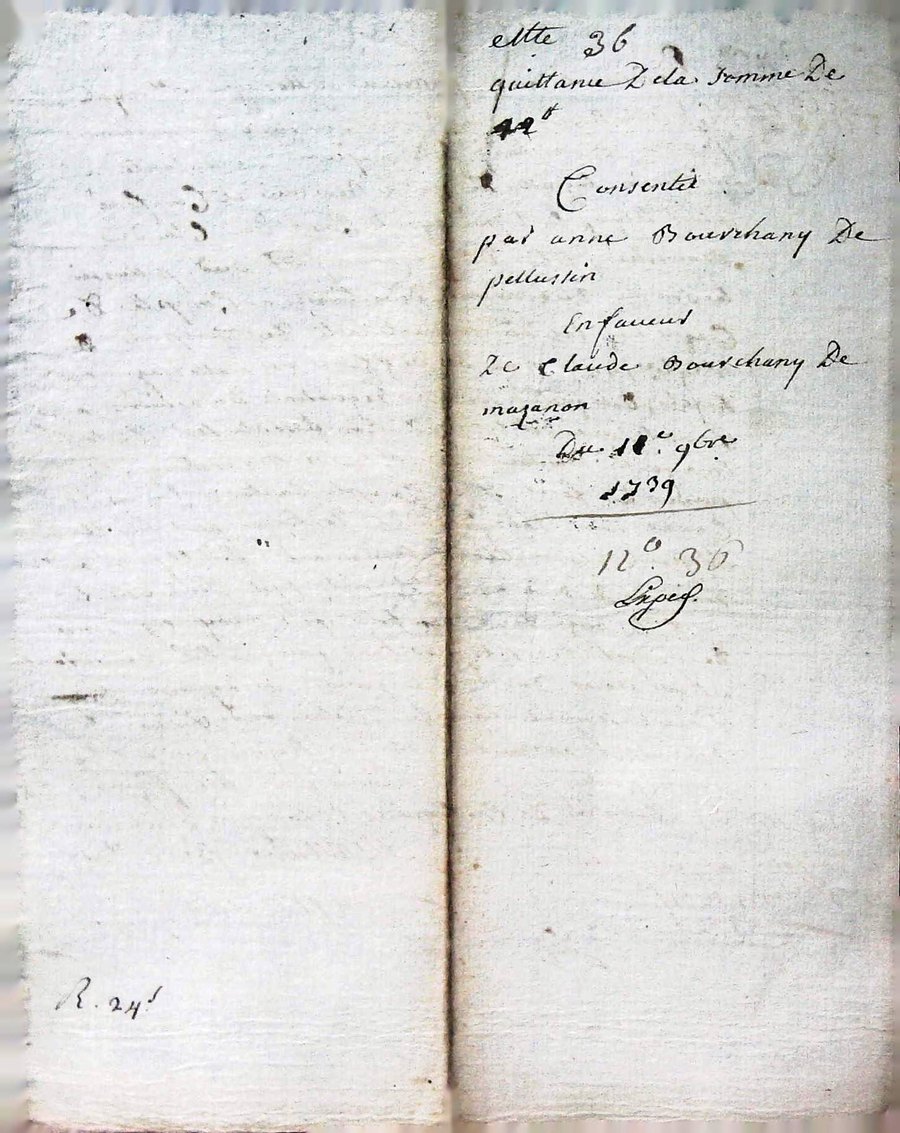 Cotte 36
quittance De la somme De
42#
Consentie
par anne Bourchany De
pellussin
En faveur
De Claude Bourchany De
mazanon
Du 11e. 9bre
1739
no. 36
R. 24s